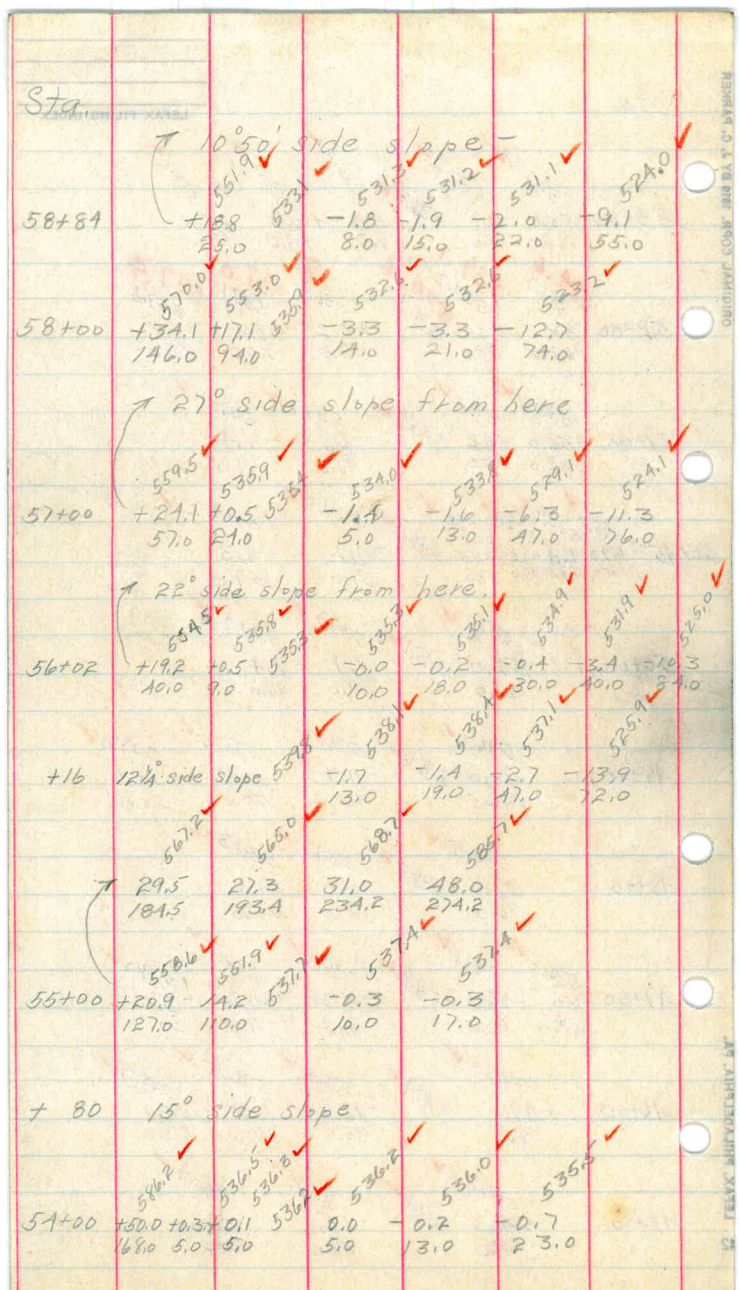 Sta.
10°50' side slope –
551.9 533.1 531.3 531.2 531.1 524.0
58+84 +18.8 -1.8 -1.9 -2.0 -9.1
25.0 8.0 15.0 22.0 55.0
570.0 553.0 535.9 532.6 532.6 523.2
58+00 +34.1 +17.1 -3.3 -3.3 -12.7
146.0 94.0 14.0 21.0 74.0
27° side slope from here
559.5 535.9 535.4 534.0 533.8 529.1 524.1
57+00 +24.1 +0.5 -1.4 -1.6 -6.3 -11.3
57.0 24.0 5.0 13.0 47.0 76.0
22° side slope from here.
554.5 535.8 535.3 535.3 535.1 534.9 531.9 525.0
56+02 +19.2 +0.5 -0.0 -0.2 -0.4 -3.4 -10.3
40.0 9.0 10.0 18.0 30.0 40.0 84.0
539.8 538.1 538.4 537.1 525.9
+16 12¼° side slope -1.7 -1.4 -2.7 -13.9
13.0 19.0 47.0 72.0
567.2 565.0 568.7 585.7
29.5 27.3 31.0 48.0
184.5 193.4 234.2 274.2
558.6 551.9 537.7 537.4 537.4
55+00 +20.9 14.2 -0.3 -0.3
127.0 110.0 10.0 17.0
+ 80 15° side slope
586.2 536.5 536.3 536.2 536.2 536.0 535.5
54+00 +50.0 +0.3 +0.1 0.0 -0.2 -0.7
168.0 5.0 5.0 5.0 13.0 23.0